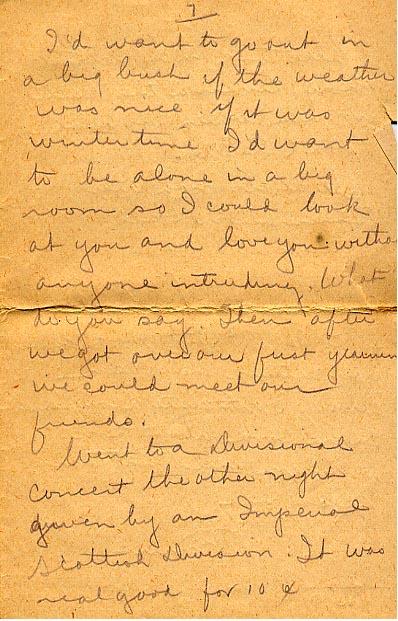 7
I'd want to go out in
a big bush if the weather
was nice. if it was
winter time I'd want
to be alone in a big
room so I could look
at you and love you witho
anyone intruding. What
do you say. Then after
we got over our first yearnin
we could meet our
friends.
Went to a Divisional
concert the other night
given by an Imperial
Scottish Division. It was
real good for 10 ¢